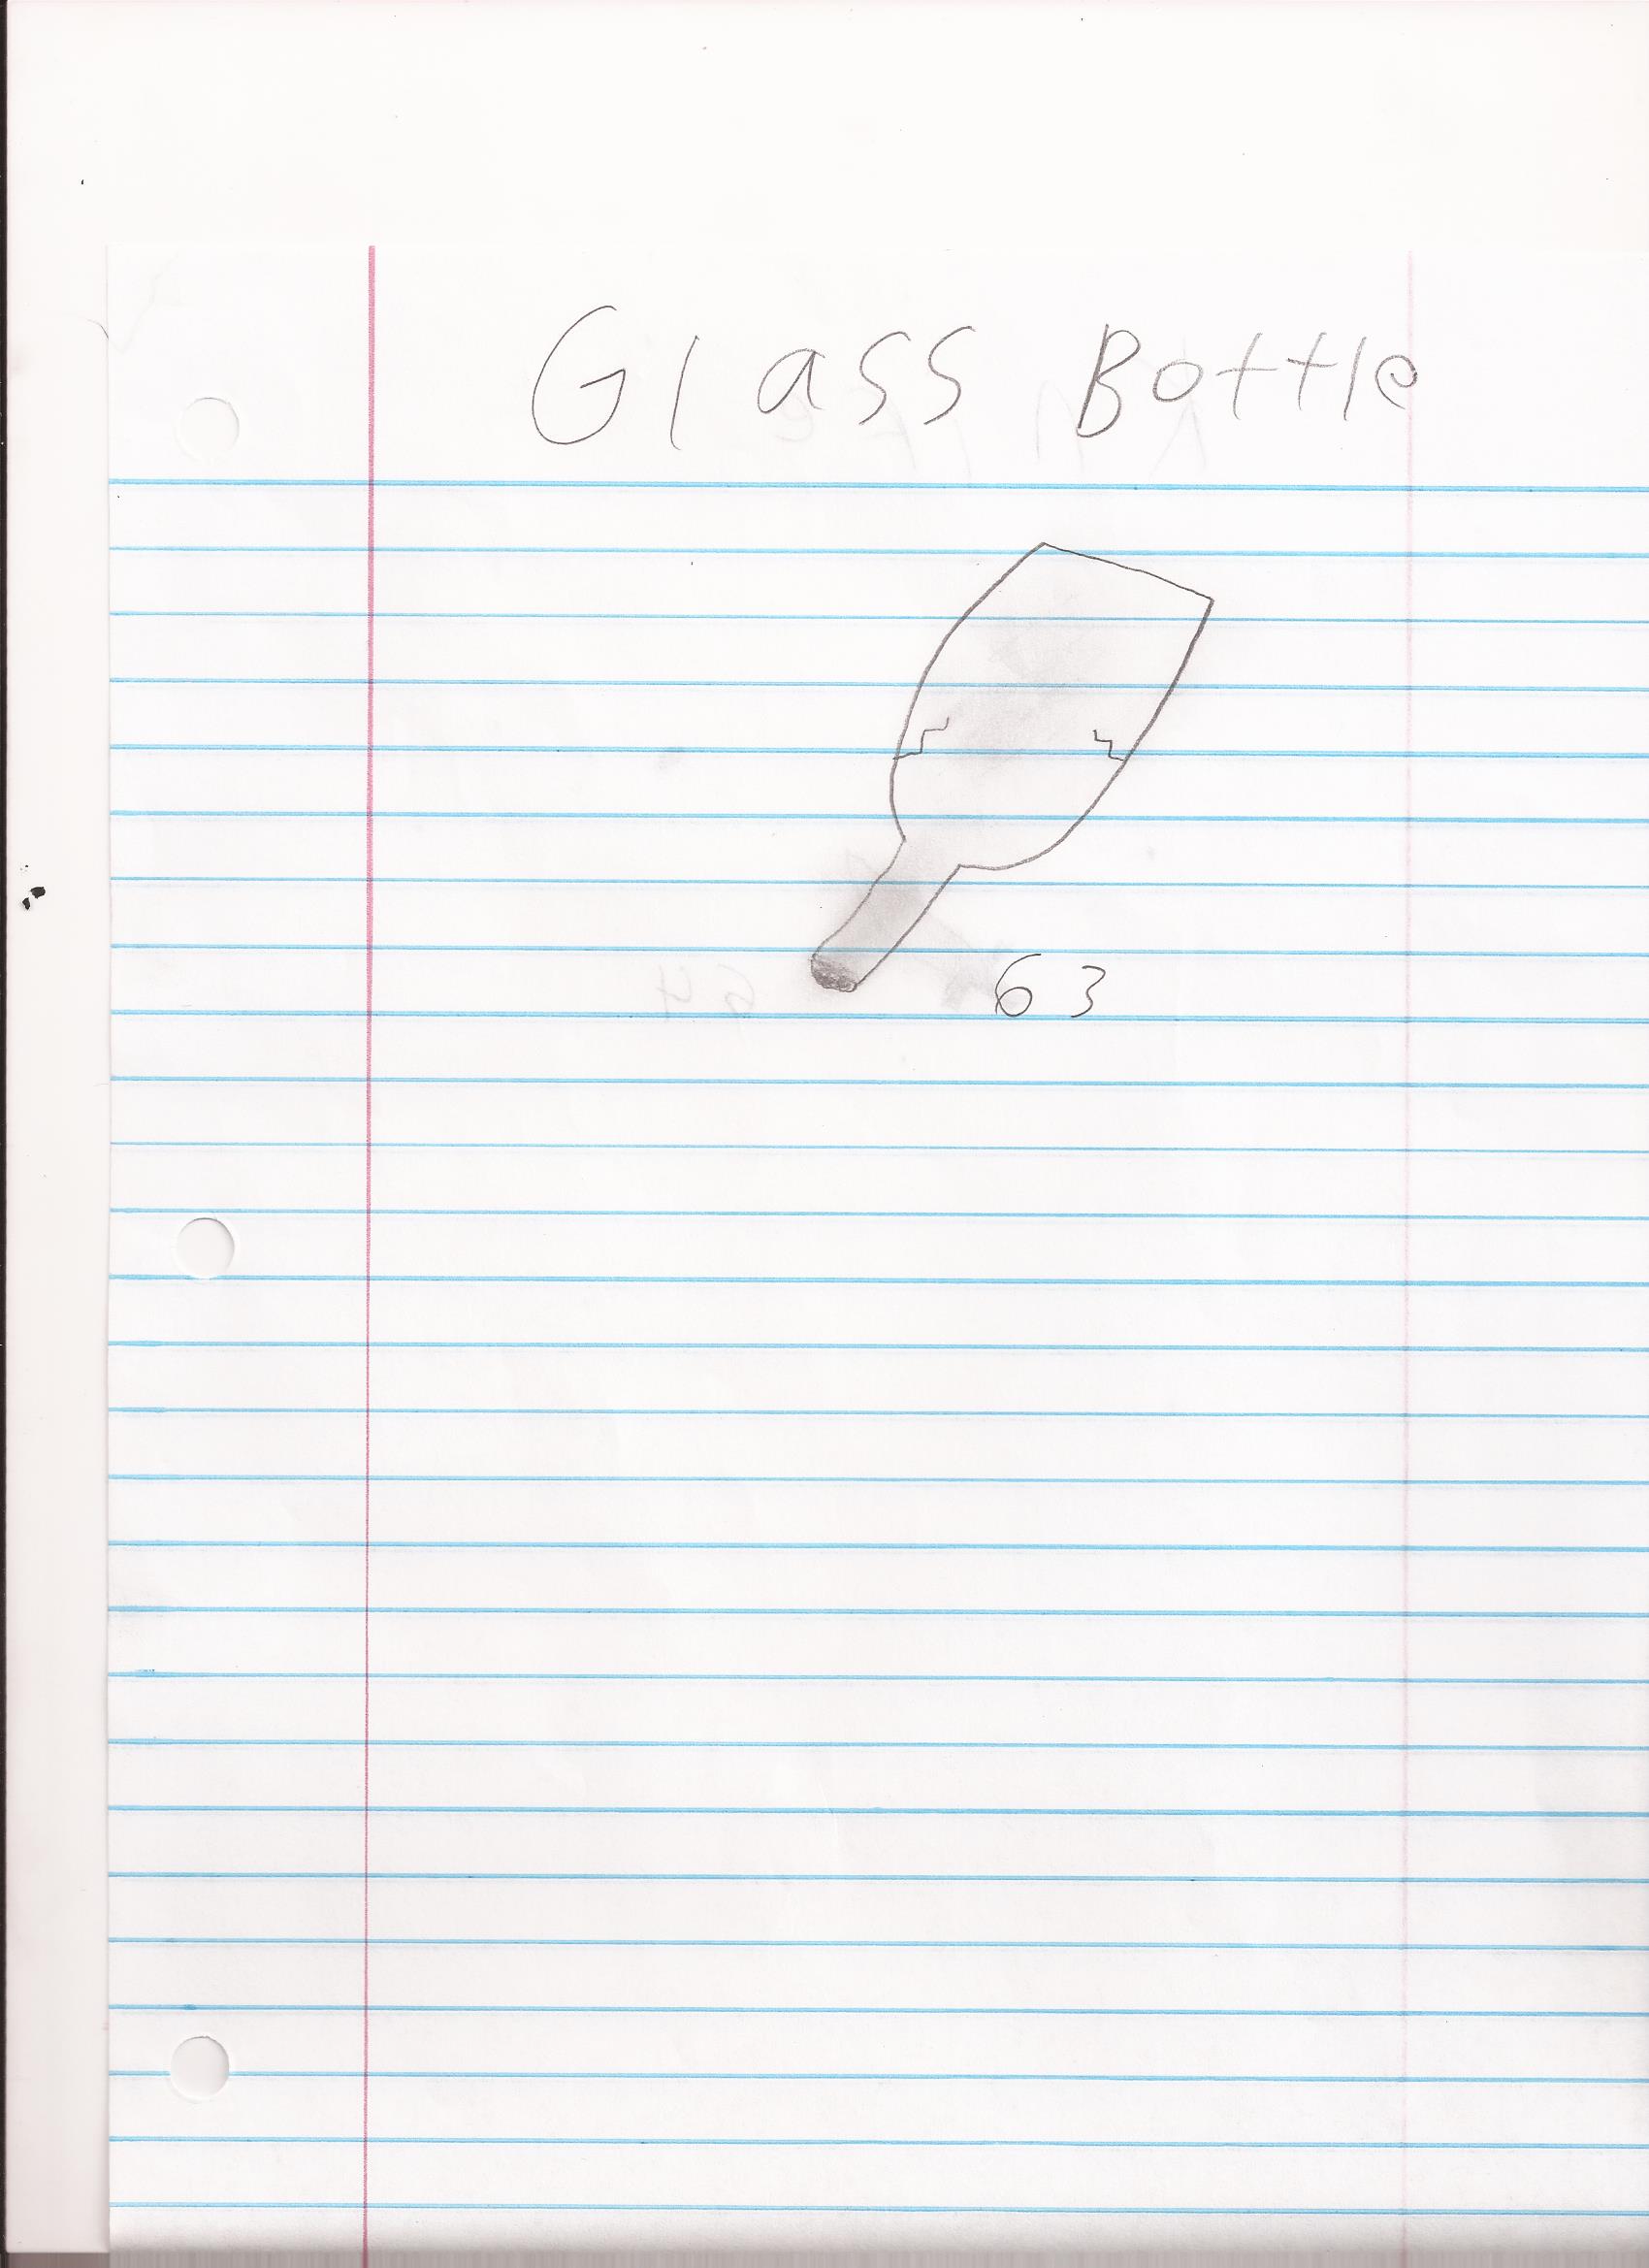 Glass Bottle
63